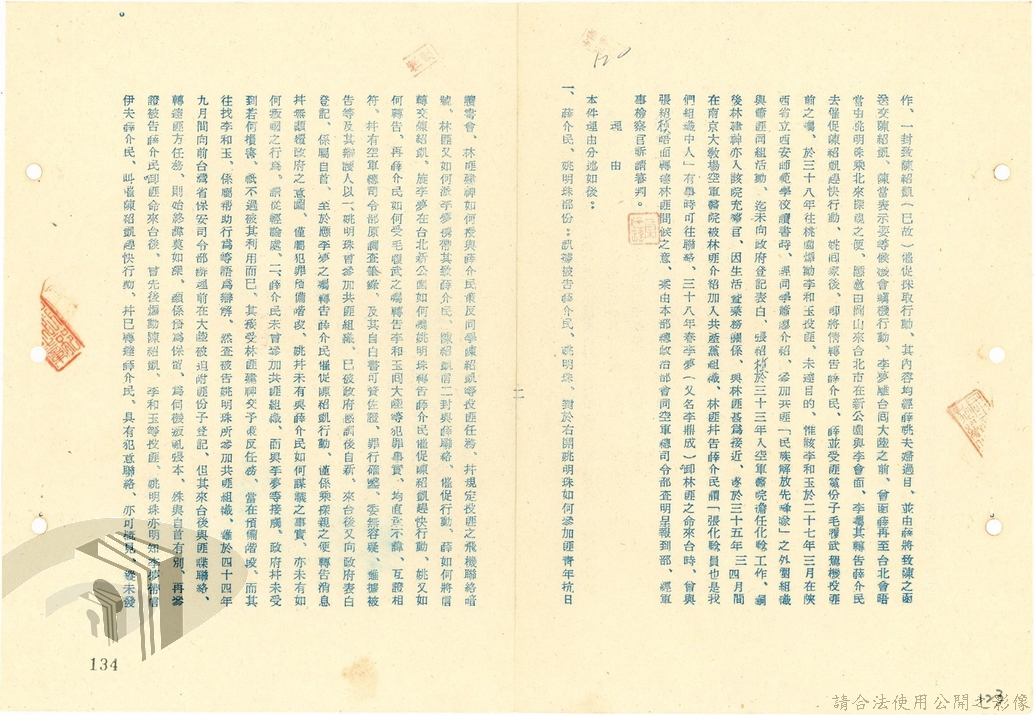 作、一封致陳紹凱(已故)催促採取行動、其內容均經薛姚夫婦過目、並由薛將致陳之函
送交陳紹凱、陳當表示要等候機會俟機行動、李夢離台回大陸之前、曾函薛再至台北會晤
當由姚明珠乘北來探親之便、應邀由岡山來台北市在新公園與李會面、李囑其轉告薛介民
去催促陳紹凱趕快行動、姚回家後、即將情轉告薛介民、薛並受匪黨份子毛履武駕機投匪
前之囑、於三十八年往桃園煽動李和玉投匪、未達目的、惟該李和玉於二十七年三月在陝
西省立西安師範學校讀書時、經同學介紹、參加共匪「民族解放先鋒隊」之外圍組織
與蕭匪同組活動、迄未向政府登記表白、張紹楨於三十三年入空軍醫院擔任化驗工作、嗣
後林建神亦入該院充藥官、因生活業務關係、與林匪甚為接近、遂於三十五年三四月間
在南京大教場空軍醫院被林匪介紹加入共產黨組織、林匪并告薛介民謂「張化驗員也是我
們組織中人」有事時可往聯絡、三十八年春李夢(又名李鼎成)卸林匪之命來台時、曾與
張紹楨晤面轉達林匪問候之意、案由本部總政治部會同空軍總司令部查明呈報到部、經軍
事檢察官訴請審判。
理由
本件理由分述如後:
一、薛介民、姚明珠部份:訊據被告薛介民、姚明珠、對於右開姚明珠如何參加匪青年抗日
二
讀書會、林匪建神如何授與薛介民策反同學陳紹凱等投匪任務、并規定投匪之飛機聯絡暗
號、林匪又如何派李夢攜帶其致薛介民、陳紹凱信二封與薛聯絡、催促行動、薛如何將信
轉交陳紹凱、旋李夢在台北新公園如何囑姚明珠轉告薛介民催促陳紹凱趕快行動、姚又如
何轉告、再薛介民如何受毛履武之囑轉告李和玉回大陸等犯罪事實、均直承不諱、互證相
符、并有空軍總司令部原調查筆錄、及其自白書可資佐證、罪行確鑿、委無容疑、雖據被
告等及其辯護人以一、姚明珠曾參加共匪組織、已被政府感訓後自新、來台後又向政府表白
登記、係屬自首、至於應李夢之囑轉告薛介民催促陳紹凱行動、僅係乘探親之便轉告消息
并無顛覆政府之意圖、僅屬犯罪預備階段、姚并未有與薛介民如何謀議之事實、亦未有如
何叛國之行為、請從輕論處、二、薛介民未曾參加共匪組織、而與李夢等接觸、政府并未受
到若何損害、祇不過被其利用而已、其接受林匪建神交予策反任務、當在預備階段、而其
往找李和玉、係屬幫助行為等語為辯解、然查被告姚明珠所參加共匪組織、雖於四十四年
九月間向前台灣省保安司令部辦理前在大陸被迫附匪份子登記、但其來台後與匪諜聯絡、
轉達匪方任務、則始終諱莫如深、顯係份為保留、為何機張本、殊與自首有別、再參
證被告薛介民卸匪命來台後、曾先後煽動陳紹凱、李和玉等投匪、姚明珠亦明知李夢帶信
伊夫薛介民、叫催陳紹凱趕快行動、并已轉達薛介民、具有犯意聯絡、亦可概見、縱未發
134
請合法使用公開之影像